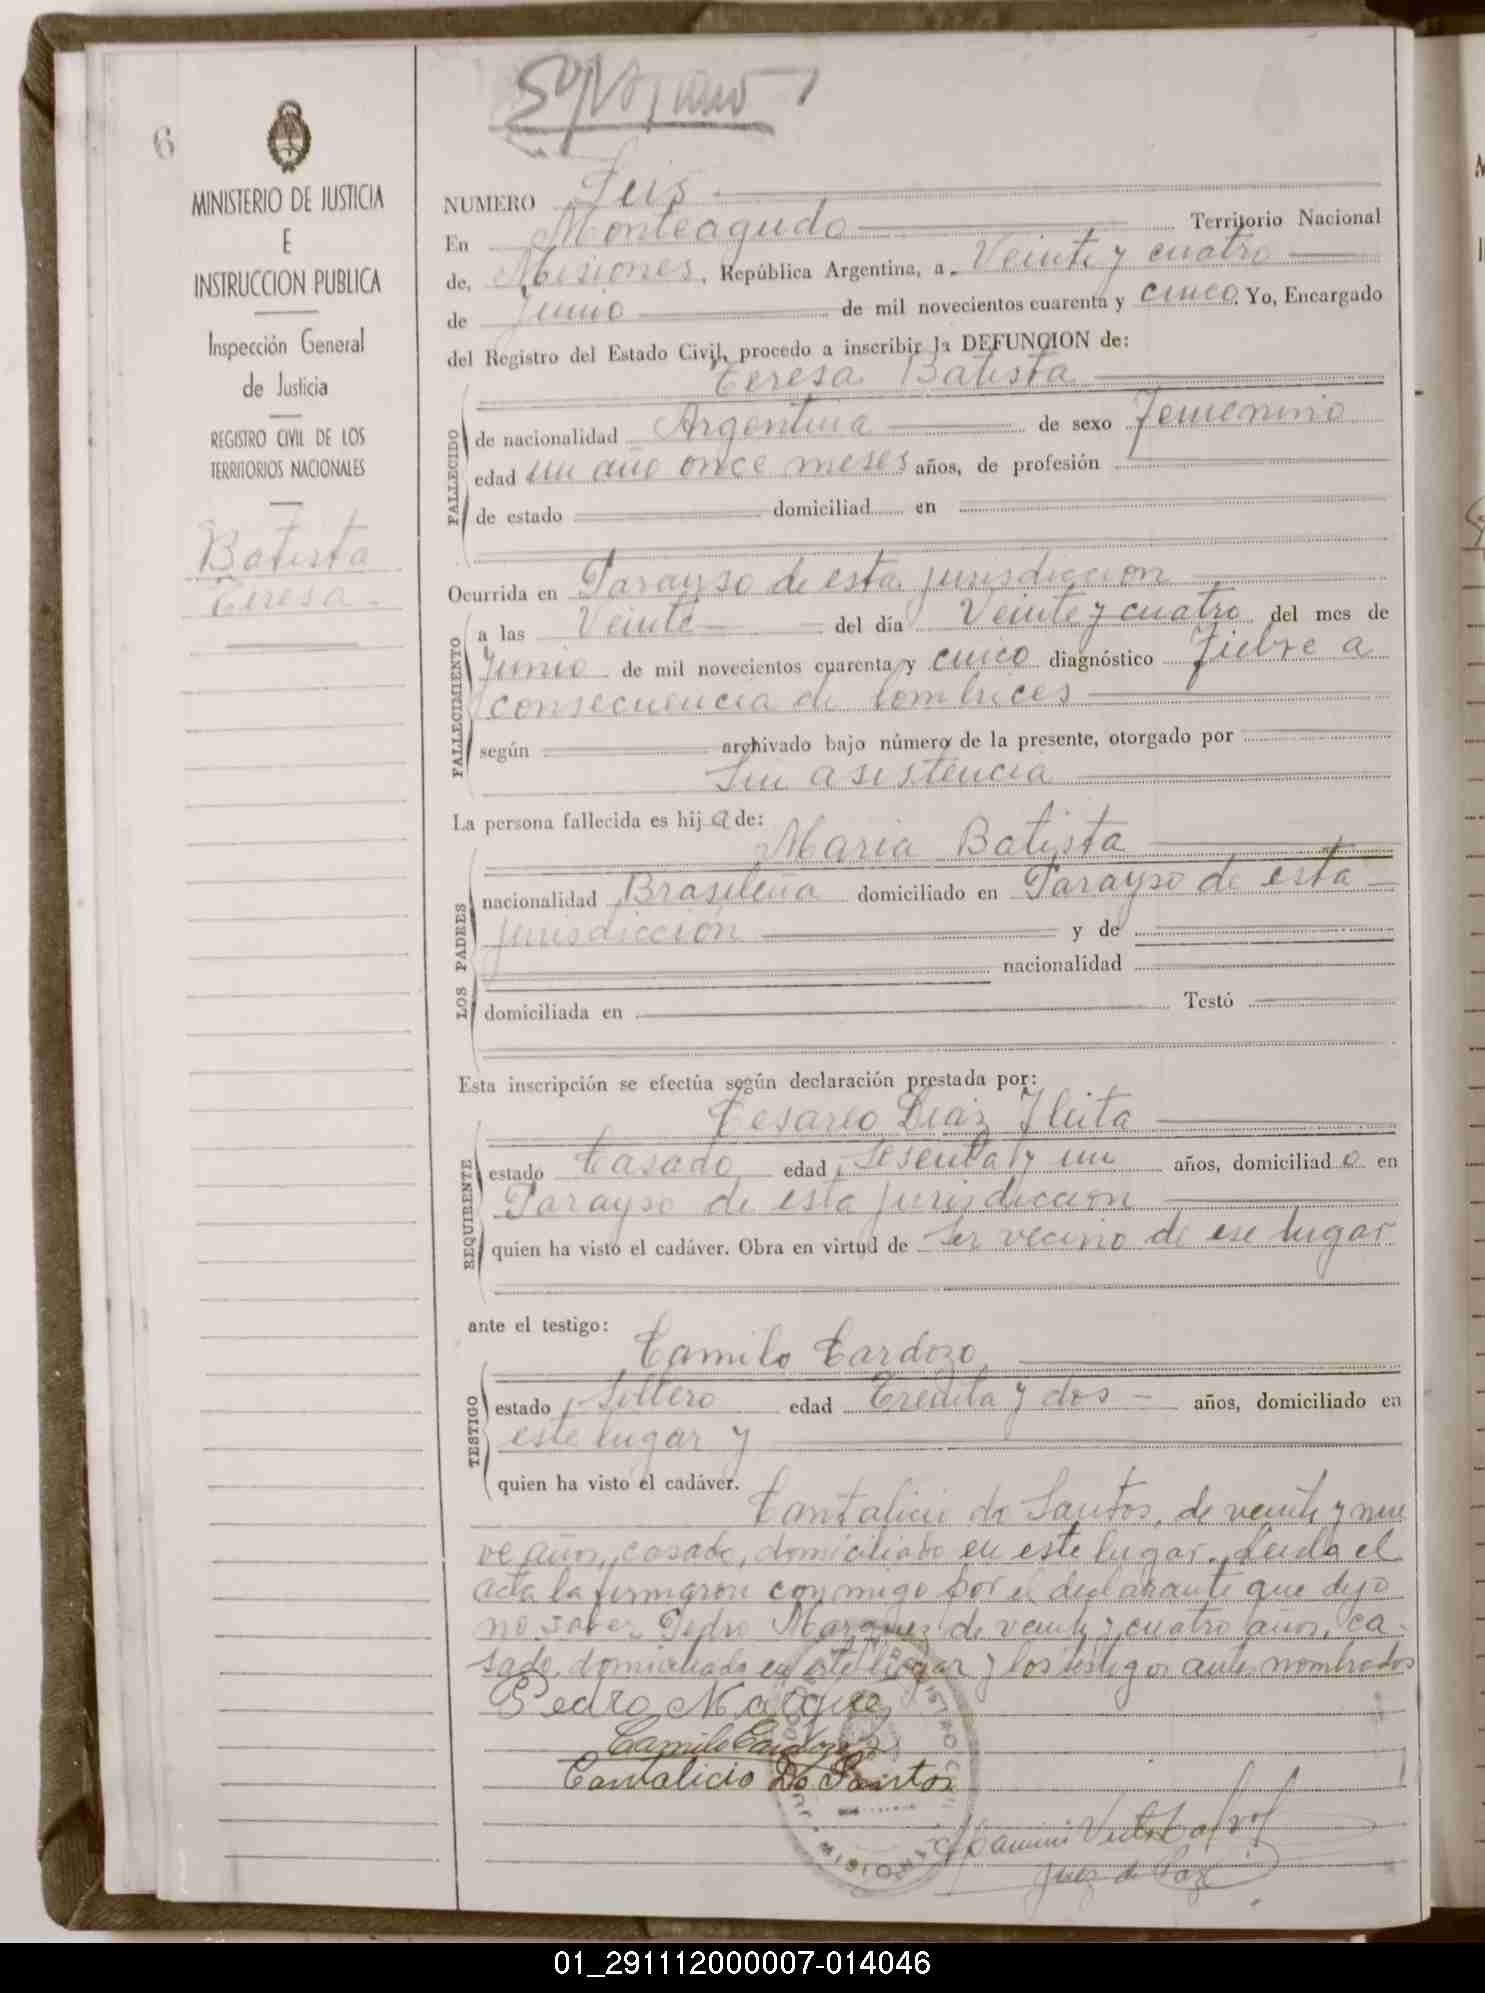 6
MINISTERIO DE JUSTICIA
E
INSTRUCCION PUBLICA
Inspección General
de Justicia
REGISTRO CIVIL DE LOS
TERRITORIOS NACIONALES
Batista
Teresa
NUMERO Seis
En Monteagudo Territorio Nacional
de, Misiones, República Argentina, a Veinte y cuatro
de Junio de mil novecientos cuarenta y cinco. Yo, Encargado
del Registro del Estado Civil, procedo a inscribir la DEFUNCION de:
Teresa Batista
FALLECIDO
de nacionalidad Argentina de sexo Femenino
edad un año once meses años, de profesión
de estado domiciliad en
Ocurrida en Parayso de esta jurisdiccion
FALLECIMIENTO
a las Veinte del día Veinte y cuatro del mes de
Junio de mil novecientos cuarenta y cinco diagnóstico Fiebre a
consecuencia de lombrices
según archivado bajo número de la presente, otorgado por
Sin asistencia
La persona fallecida es hija de:
Maria Batista
LOS PADRES
nacionalidad Brasileña domiciliado en Parayso de esta
jurisdicción y de
nacionalidad
domiciliada en Testó
Esta inscripción se efectúa según declaración prestada por:
Cesareo Diaz Fleita
REQUIRENTE
estado Casado edad Sesenta y un años, domiciliado en
Parayso de esta jurisdiccion
quien ha visto el cadáver. Obra en virtud de ser vecino de ese lugar
ante el testigo:
Camilo Cardozo
TESTIGO
estado Soltero edad Treinta y dos años, domiciliado en
este lugar y
quien ha visto el cadáver.
Cantalicio do Santos, de veinte y nue
ve años, casado, domiciliado en este lugar. Leida el
acta la firmaron conmigo por el declarante que dijo
no saber Pedro Marquez de veinte y cuatro años, ca
sado, domiciliado en este lugar y los testigos ante nombrados
Pedro Marquez
Camilo Cardozo
Cantalicio Do Santos
Juez de Paz
01_291112000007-014046